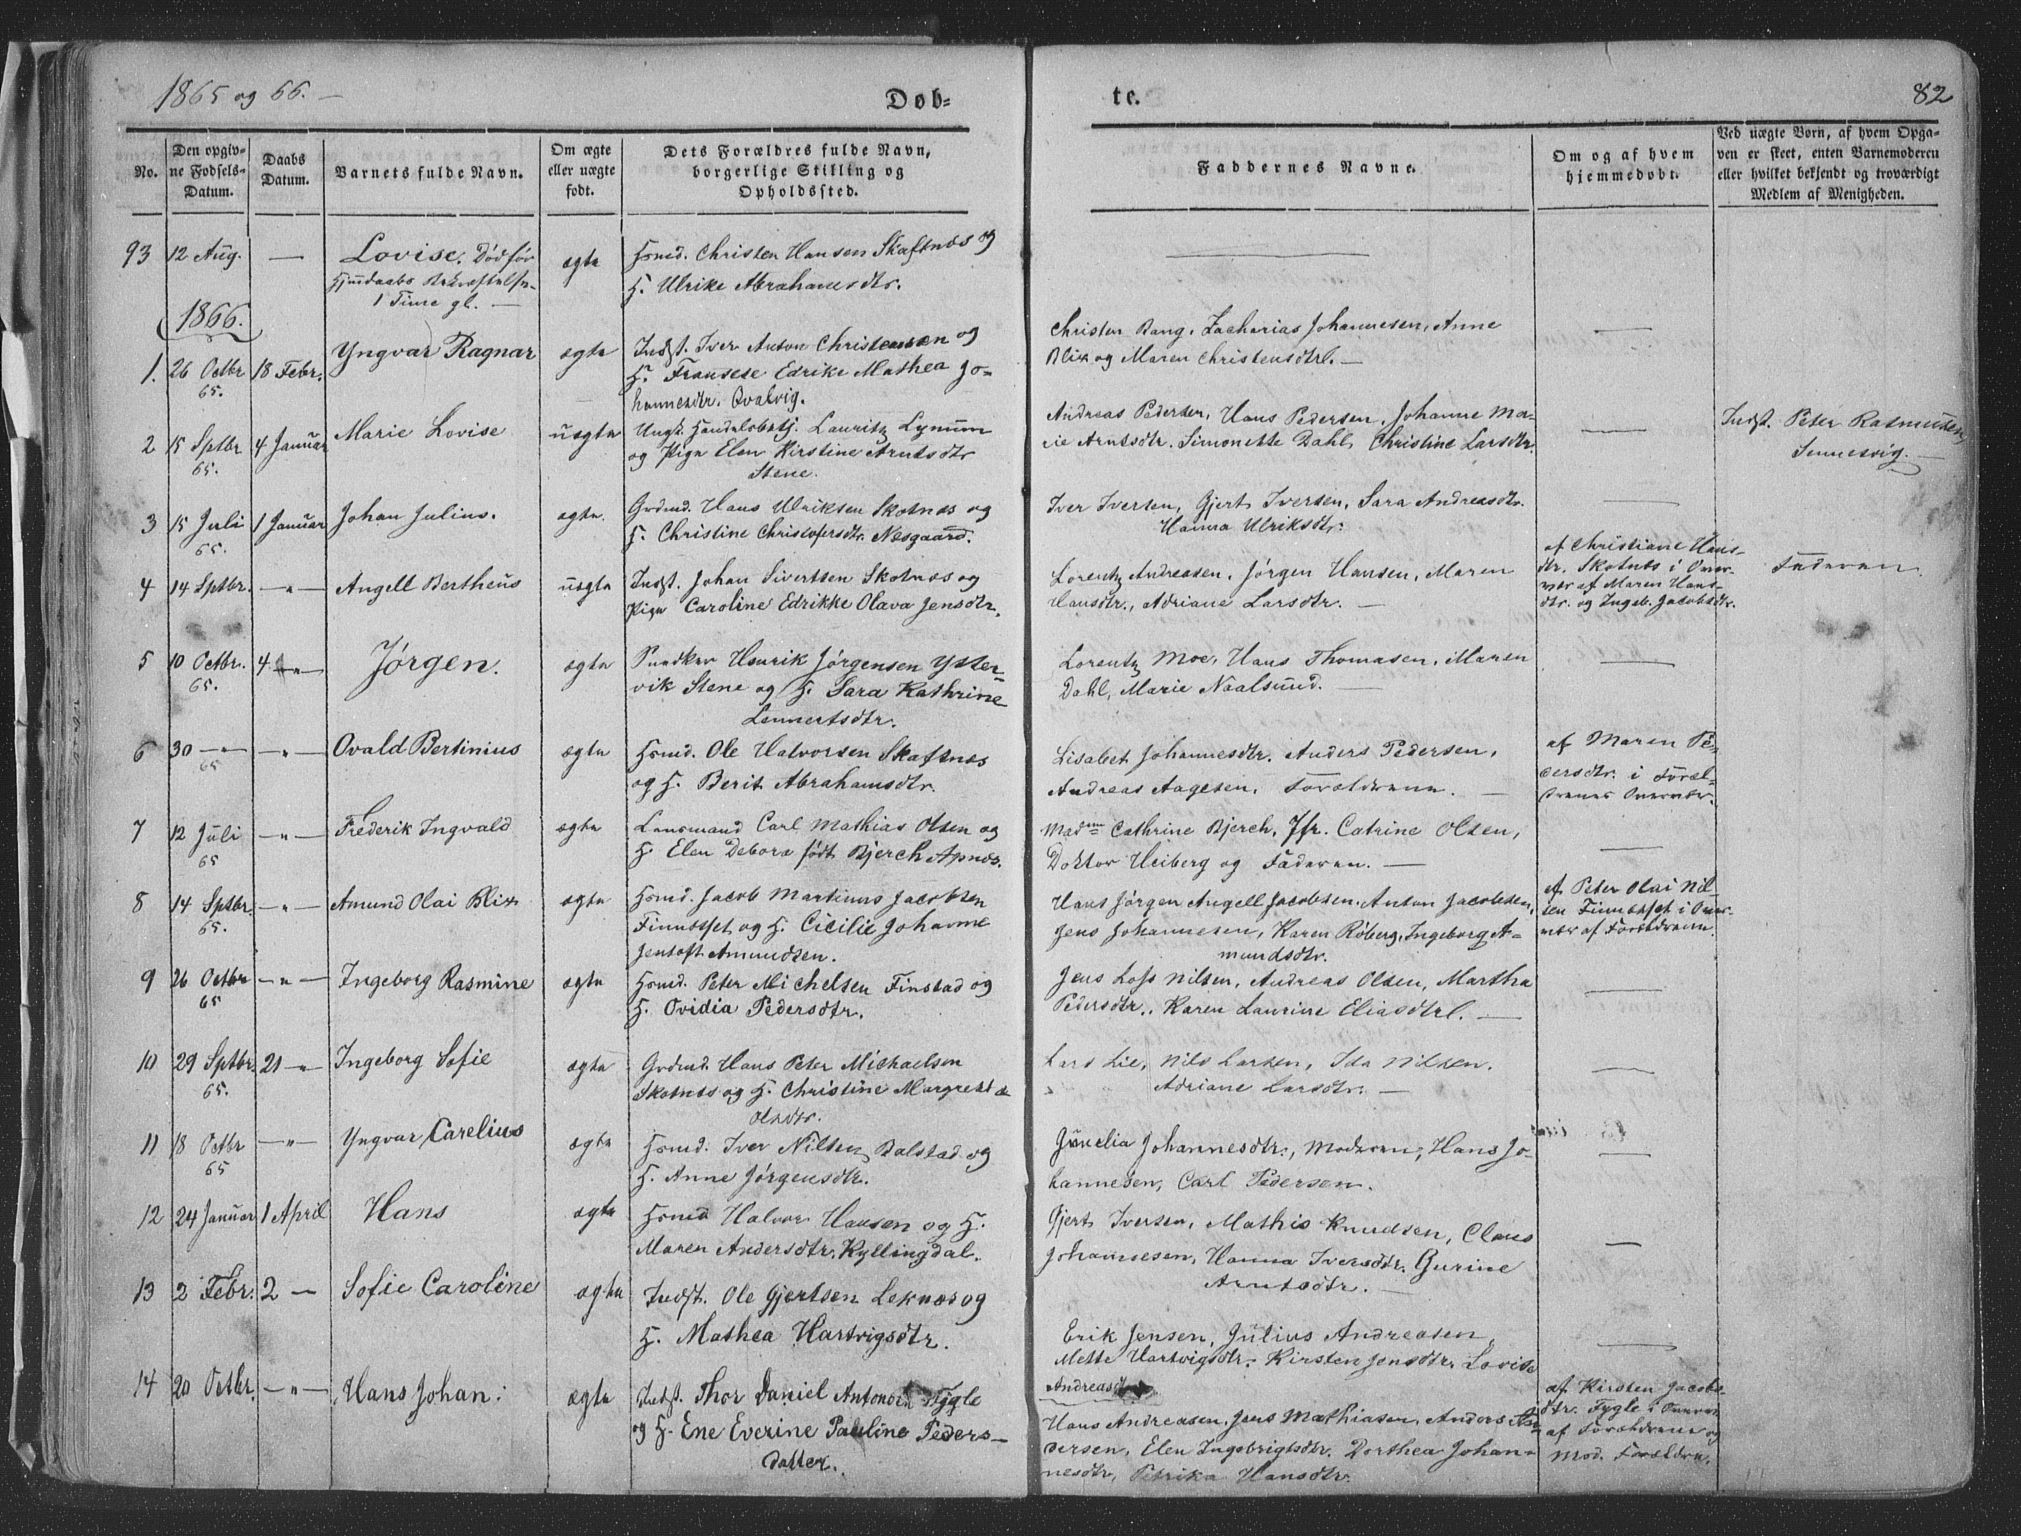 1865 og 66. —
Døb-
te.
82
No.
Den opgiv-
ne Fødsels-
Datum.
Daabs
Datum.
Barnets fulde Navn.
Om ægte
eller uægte
født.
Dets Forældres fulde Navn,
borgerlige Stilling og
Opholdssted.
Faddernes Navne.
Om og af hvem
hjemmedøbt.
Ved uægte Børn, af hvem Opga-
ven er skeet, enten Barnemoderen
eller hvilket bekjendt og troværdigt
Medlem af Menigheden.
93 12 Aug. — Lovise. Dødfør ægte Hsmd. Christen Hansen Skaftnæs og —
Hjmdaabs
1 Time gl. — H. Ulrike Abrahamsdtr.
1866.
1. 26 Octbr 65. 18 Febr. Yngvar Ragnar ægte Indst. Iver Anton Christensen og
H. Fransese Edrike Mathea Jo-
hannesdtr. Qvalvig.
Christen Bang, Zacharias Johannesen, Anne
Blix og Maren Christensdtr. —
2 15 Sptbr 65. 4 Januar Marie Lovise uægte Ungk. Handelsbetj. Lauritz Lynum
og Pige Elen Kirstine Arntsdtr
Stene.
Andreas Pedersen, Hans Pedersen, Johanne Ma-
rie Arntsdtr. Simonette Dahl, Christine Larsdtr.
—
Indst. Peter Rasmussen
Sennesvig. —
3 15 Juli 65. 1 Januar Johan Julius. ægte. Grdmd. Hans Ulriksen Skotnæs og
H. Christine Christofersdtr. Næsgaard.
Iver Iversen, Gjert Iversen, Sara Andreasdtr.
Hanna Ulriksdtr.
—
4 14 Sptbr. — " — Angell Bertheus uægte Indst. Johan Sivertsen Skotnæs og
Pige Caroline Edrikke Olava Jensdtr.
Lorentz Andreasen, Jørgen Hansen, Maren
Hansdtr., Adriane Larsdtr. —
af Christiane Hans-
dtr. Skotnæs i Over-
vær af Maren Hans-
dtr. og Ingeb. Jacobsdtr.
Faderen.
5 10 Octbr. 65. 4 — " Jørgen. ægte Henrik Jørgensen Ytter-
vik Stene og H. Sara Kathrine
Lennertsdtr.
Lorentz Moe, Hans Thomasen, Maren
Dahl, Marie Naalsund. —
—
6 30 — " — 65 — " — Ovald Bertinius ægte Hsmd. Ole Halvorsen Skaftnæs
og H. Berit Abrahamsdtr.
Lisabet Johannesdtr. Anders Pedersen,
Andreas Aagesen, Forældrene. —
af Maren Pe-
dersdtr. i Foræl-
drenes Overvær.
7 12 Juli 65 — " — Frederik Ingvald ægte Lensmand Carl Mathias Olsen og
H. Elen Debora født Bjerch Apnæs.
Madme Cathrine Bjerch, Jfr. Catrine Olsen,
Doktor Heiberg og Faderen. —
—
8 14 Sptbr. 65. — " — Amund Olai Blix ægte Hsmd. Jacob Martinus Jacobsen
Finnesset og H. Cicilie Johanne
Jensoft Amundsen.
Hans Jørgen Angell Jacobsen, Anton Jacobsen,
Jens Johannesen, Karen Røberg, Ingeborg A-
mundsdtr.
af Peter Olai Nil-
sen Finnesset i Over-
vær af Forældrene.
9 26 Octbr 65 — " — Ingeborg Rasmine ægte Hsmd. Peter Michelsen Finstad og
H. Ovidia Pedersdtr.
Jens Loss Nilsen, Andreas Olsen, Martha
Pedersdtr., Karen Laurine Eliasdtr. —
—
10 29 Sptbr. 65. 21 — " Ingeborg Sofie ægte Grdmd. Hans Peter Michaelsen
Skotnæs og H. Christine Margrethe
Olsdtr.
Lars Lie, Nils Larsen, Ida Nilsen,
Adriane Larsdtr. —
—
11 18 Octbr 65 — " — Yngvar Carelius ægte Hsmd. Iver Nilsen Balstad og
H. Anne Jørgensdtr.
Johannesdtr., Moderen, Hans Jo-
hannesen, Carl Pedersen.
—
12 24 Januar 1 April Hans ægte Hsmd Halvor Hansen og H.
Maren Andersdtr. Kyllingdal.
Gjert Iversen, Mathis Knudsen, Claus
Johannesen, Hanna Iversdtr. Gurine
Arntsdtr. —
—
13 2 Febr. 2 — Sofie Caroline ægte Indst. Ole Gjertsen Leknæs og
H. Mathea Hartvigsdtr.
Erik Jensen, Julius Andreasen,
Mette Hartvigsdtr. Kirsten Jensdtr. Lovise
Andreasdtr.
—
14 20 Octbr. — " — Hans Johan. ægte Indst. Thor Daniel Antonsen Fygle
og H. Ene Everine Pauline Peders-
datter.
Hans Andreasen, Jens Mathiasen, Anders An-
dersen, Elen Ingebrigtsdtr. Dorthea Johan-
nesdtr, Petrika Hansdtr.
af Kirsten Jacobs-
dtr. Fygle i Overvær
af Forældrene og
Mod. Forældre.